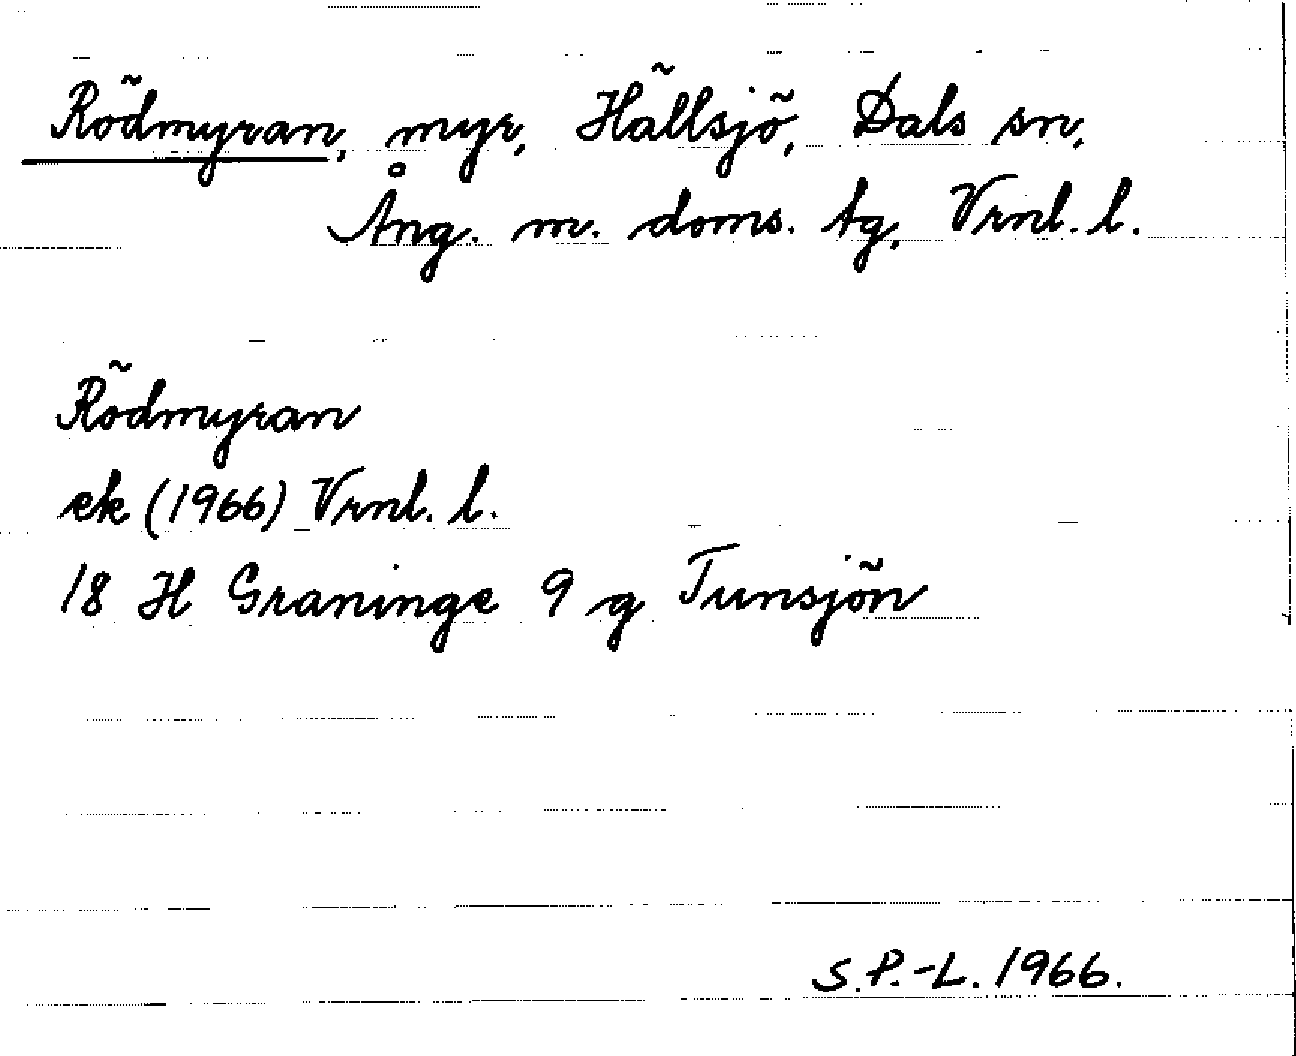 Rödmyran, myr, Hällsjö, Dals sn,
Ång. m. doms. tg, Vrnl. l.
Rödmyran
ek (1966) Vrnl. l.
18 H Graninge 9 g Tunsjön
S.P.-L. 1966.